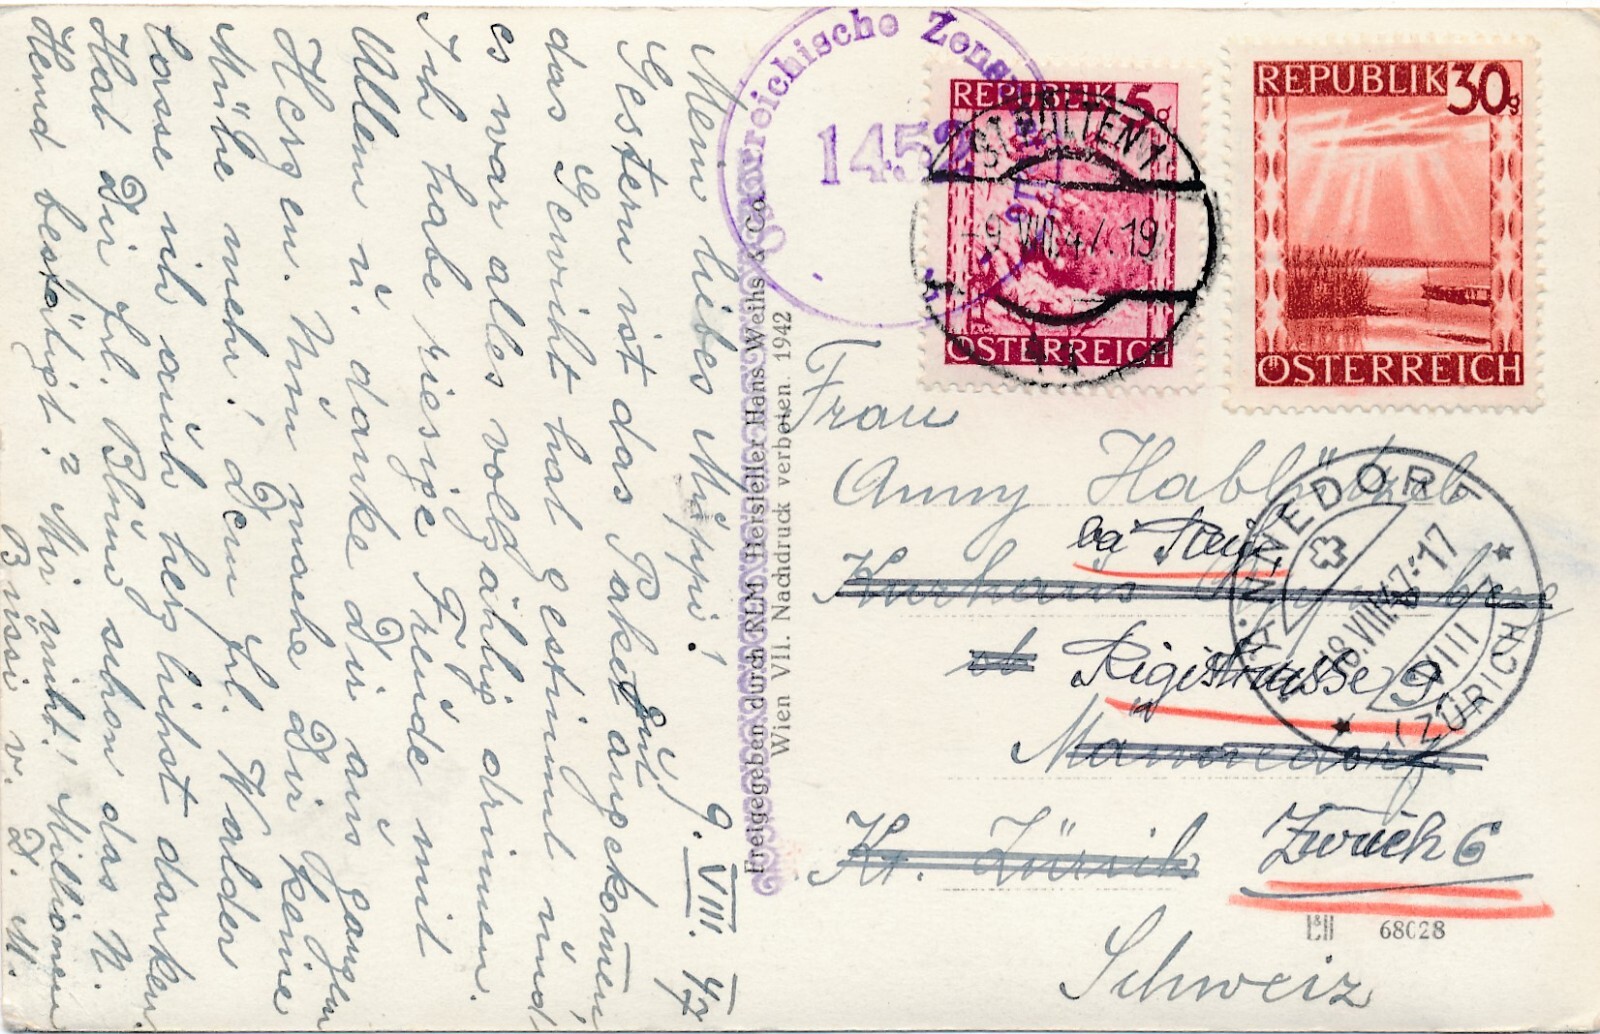 9. VIII. 47
Mein liebes Müppi!
Gestern ist das Paket gut angekom̅en,
das Gewicht hat gestimmt und
es war alles vollzählig drinnen.
Ich habe riesige Freude mit
Allem u. danke Dir aus ganzem
Herzen. Nun mache Dir keine
Mühe mehr! Dem Frl. Walder
lasse ich auch herzlichst danken.
Hat Dir Frl. Blümi schon das N.
Hemd bestätigt? Mir nicht! Millionen
Bussi v. D. M.
Freigegeben durch RLM Hersteller Hans Weihs & Co.
Wien VII. Nachdruck verboten. 1942
Österreichische Zensur
1452
REPUBLIK 5g
ÖSTERREICH
REPUBLIK 30g
ÖSTERREICH
ST. PÖLTEN 1
-9.VIII.47.19
Frau
Anny Hablützel
Kurhaus
Rigistrasse 9
Männedorf
Kt. Zürich
Zürich 6
Schweiz
MÄNNEDORF
18.VIII.47-17
VIII
(ZÜRICH)
68028